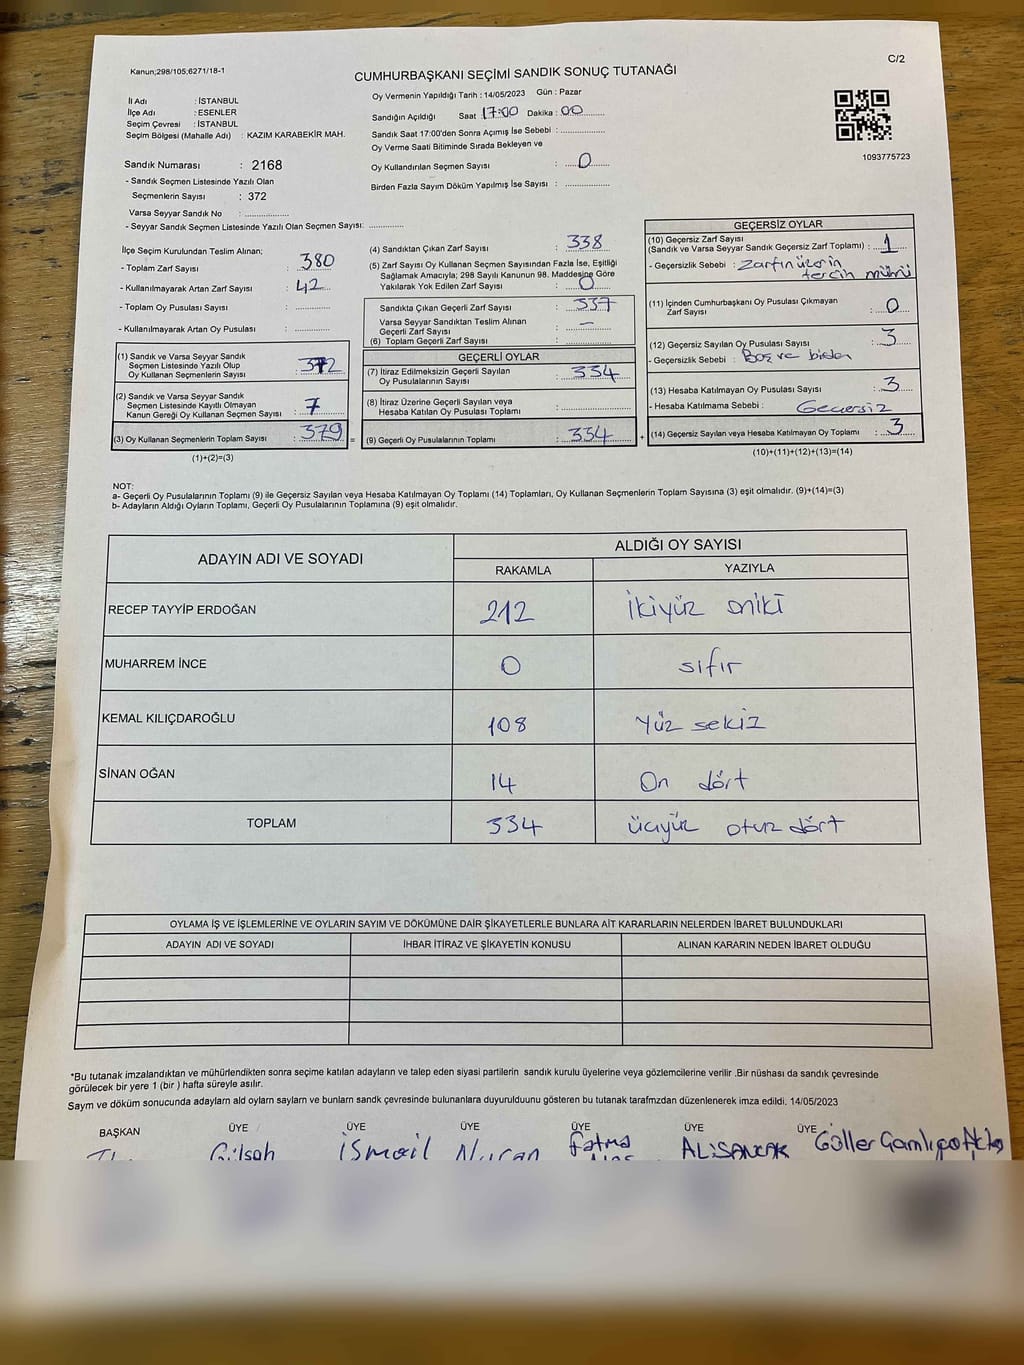 Kanun;298/105;6271/18-1
C/2
CUMHURBAŞKANI SEÇİMİ SANDIK SONUÇ TUTANAĞI
İl Adı : İSTANBUL
İlçe Adı : ESENLER
Seçim Çevresi : İSTANBUL
Seçim Bölgesi (Mahalle Adı) : KAZIM KARABEKİR MAH.
Oy Vermenin Yapıldığı Tarih : 14/05/2023 Gün : Pazar
Sandığın Açıldığı Saat 17:00 Dakika : 00
Sandık Saat 17:00'den Sonra Açımış İse Sebebi :
Oy Verme Saati Bitiminde Sırada Bekleyen ve
Oy Kullandırılan Seçmen Sayısı : 0
Birden Fazla Sayım Döküm Yapılmış İse Sayısı :
1093775723
Sandık Numarası : 2168
- Sandık Seçmen Listesinde Yazılı Olan
Seçmenlerin Sayısı : 372
Varsa Seyyar Sandık No :
- Seyyar Sandık Seçmen Listesinde Yazılı Olan Seçmen Sayısı:
İlçe Seçim Kurulundan Teslim Alınan;
- Toplam Zarf Sayısı : 380
- Kullanılmayarak Artan Zarf Sayısı : 42
- Toplam Oy Pusulası Sayısı :
- Kullanılmayarak Artan Oy Pusulası :
(1) Sandık ve Varsa Seyyar Sandık
Seçmen Listesinde Yazılı Olup
Oy Kullanan Seçmenlerin Sayısı : 372
(2) Sandık ve Varsa Seyyar Sandık
Seçmen Listesinde Kayıtlı Olmayan
Kanun Gereği Oy Kullanan Seçmen Sayısı : 7
(3) Oy Kullanan Seçmenlerin Toplam Sayısı : 379 =
(1)+(2)=(3)
(4) Sandıktan Çıkan Zarf Sayısı : 338
(5) Zarf Sayısı Oy Kullanan Seçmen Sayısından Fazla İse, Eşitliği
Sağlamak Amacıyla; 298 Sayılı Kanunun 98. Maddesine Göre
Yakılarak Yok Edilen Zarf Sayısı : 0
Sandıkta Çıkan Geçerli Zarf Sayısı : 337
Varsa Seyyar Sandıktan Teslim Alınan
Geçerli Zarf Sayısı : –
(6) Toplam Geçerli Zarf Sayısı :
GEÇERLİ OYLAR
(7) İtiraz Edilmeksizin Geçerli Sayılan
Oy Pusulalarının Sayısı : 334
(8) İtiraz Üzerine Geçerli Sayılan veya
Hesaba Katılan Oy Pusulası Toplamı :
(9) Geçerli Oy Pusulalarının Toplamı : 334 +
GEÇERSİZ OYLAR
(10) Geçersiz Zarf Sayısı
(Sandık ve Varsa Seyyar Sandık Geçersiz Zarf Toplamı) : 1
- Geçersizlik Sebebi : Zarfın üzerin
tercih mührü
(11) İçinden Cumhurbaşkanı Oy Pusulası Çıkmayan
Zarf Sayısı : 0
(12) Geçersiz Sayılan Oy Pusulası Sayısı : 3
- Geçersizlik Sebebi : Boş ve birden
(13) Hesaba Katılmayan Oy Pusulası Sayısı : 3
- Hesaba Katılmama Sebebi : Geçersiz
(14) Geçersiz Sayılan veya Hesaba Katılmayan Oy Toplamı : 3
(10)+(11)+(12)+(13)=(14)
NOT:
a- Geçerli Oy Pusulalarının Toplamı (9) ile Geçersiz Sayılan veya Hesaba Katılmayan Oy Toplamı (14) Toplamları, Oy Kullanan Seçmenlerin Toplam Sayısına (3) eşit olmalıdır. (9)+(14)=(3)
b- Adayların Aldığı Oyların Toplamı, Geçerli Oy Pusulalarının Toplamına (9) eşit olmalıdır.
ADAYIN ADI VE SOYADI
ALDIĞI OY SAYISI
RAKAMLA YAZIYLA
RECEP TAYYİP ERDOĞAN 212 İkiyüz oniki
MUHARREM İNCE 0 sıfır
KEMAL KILIÇDAROĞLU 108 Yüz sekiz
SİNAN OĞAN 14 On dört
TOPLAM 334 üçyüz otuz dört
OYLAMA İŞ VE İŞLEMLERİNE VE OYLARIN SAYIM VE DÖKÜMÜNE DAİR ŞİKAYETLERLE BUNLARA AİT KARARLARIN NELERDEN İBARET BULUNDUKLARI
ADAYIN ADI VE SOYADI İHBAR İTİRAZ VE ŞİKAYETİN KONUSU ALINAN KARARIN NEDEN İBARET OLDUĞU
*Bu tutanak imzalandıktan ve mühürlendikten sonra seçime katılan adayların ve talep eden siyasi partilerin sandık kurulu üyelerine veya gözlemcilerine verilir .Bir nüshası da sandık çevresinde
görülecek bir yere 1 (bir ) hafta süreyle asılır.
Saym ve döküm sonucunda adaylarn ald oylarn saylarn ve bunlarn sandk çevresinde bulunanlara duyurulduunu gösteren bu tutanak tarafmzdan düzenlenerek imza edildi. 14/05/2023
BAŞKAN ÜYE ÜYE ÜYE ÜYE ÜYE ÜYE
Gülşah İsmail Nuran Fatma ALİSANCAK Güller